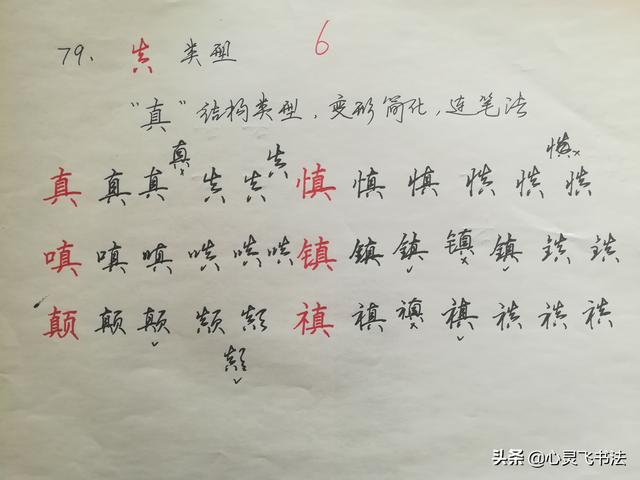 79. 真 类型 6
“真”结构类型，变形简化，连笔法
真 真 真 真 真 真 真 慎 慎 慎 慎 慎 慎 慎
嗔 嗔 嗔 嗔 嗔 嗔 镇 镇 镇 镇 镇 镇 镇
颠 颠 颠 颠 颠 禛 禛 禛 禛 禛 禛 禛
颠
头条 @心灵飞书法